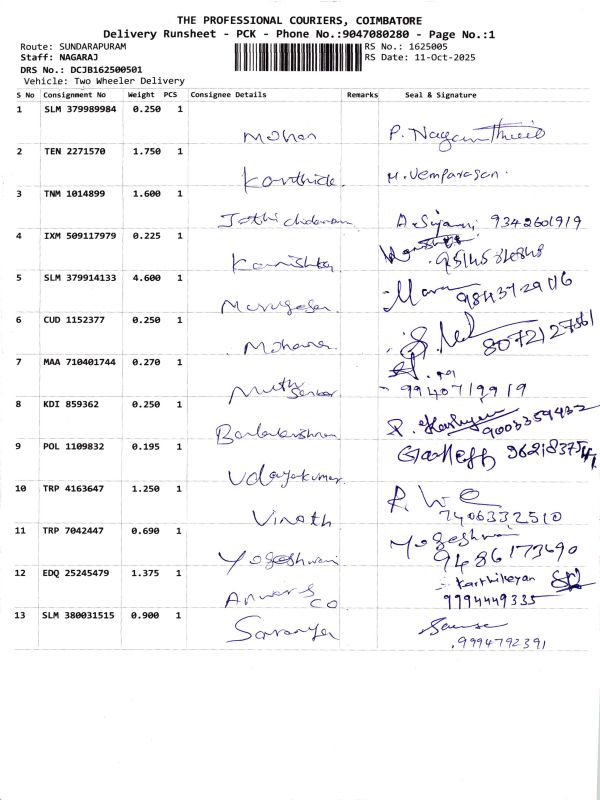 THE PROFESSIONAL COURIERS, COIMBATORE
Delivery Runsheet - PCK - Phone No.:9047080280 - Page No.:1
Route: SUNDARAPURAM RS No.: 1625005
Staff: NAGARAJ RS Date: 11-Oct-2025
DRS No.: DCJB162500501
Vehicle: Two Wheeler Delivery
S No Consignment No Weight PCS Consignee Details Remarks Seal & Signature
1 SLM 379989984 0.250 1
Mohan
2 TEN 2271570 1.750 1
Karthick. M. Vemparasan.
3 TNM 1014899 1.600 1
9342601919
4 IXM 509117979 0.225 1
Kanishka
5 SLM 379914133 4.600 1
Murugesan
6 CUD 1152377 0.250 1
Mohana. 8072127561
7 MAA 710401744 0.270 1
9940719919
8 KDI 859362 0.250 1
Balakrishnan 9003359432
9 POL 1109832 0.195 1
Udayakumar
10 TRP 4163647 1.250 1
Vinoth 7406332510
11 TRP 7042447 0.690 1
Yogeshwari Yogeshwari
9486173690
12 EDQ 25245479 1.375 1
Anwar & CO Karthikeyan
9994449335
13 SLM 380031515 0.900 1
Saranya
9994792391